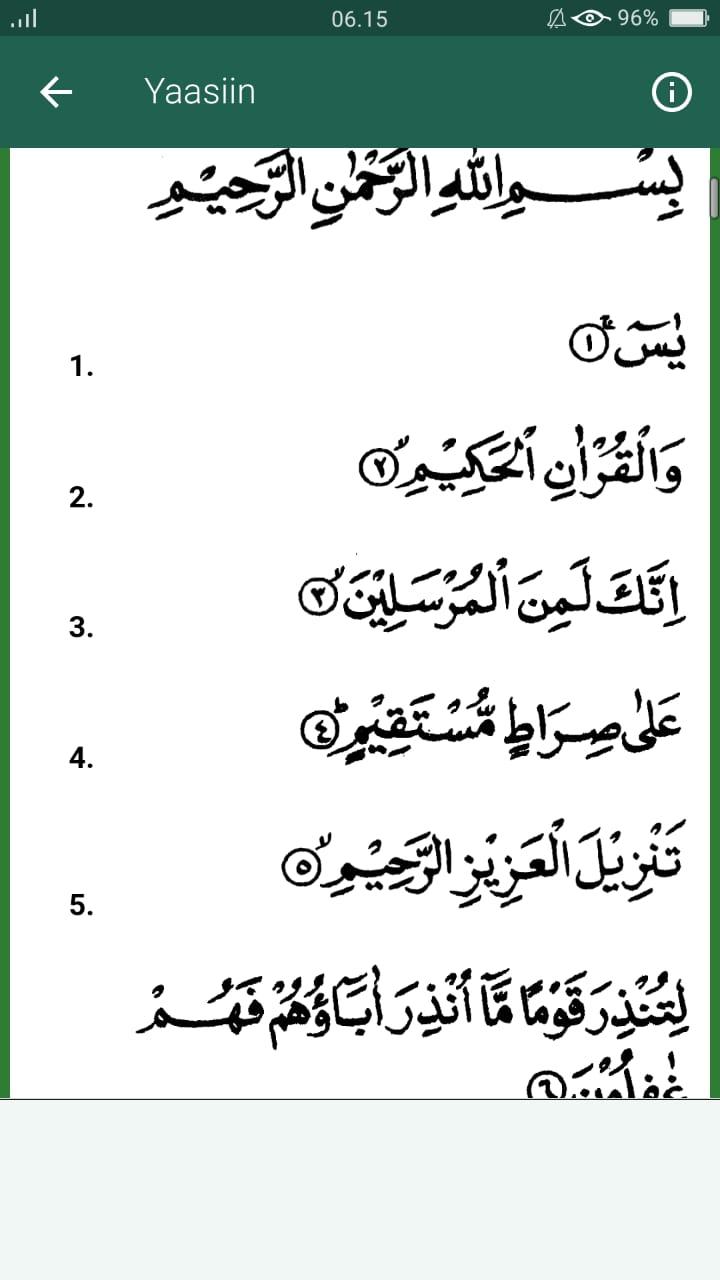 06.15 96%
Yaasiin
بِسْمِ اللهِ الرَّحْمٰنِ الرَّحِيْمِ
يٰسۤ ۚ ١
1.
وَالْقُرْاٰنِ الْحَكِيْمِ ۙ ٢
2.
اِنَّكَ لَمِنَ الْمُرْسَلِيْنَ ۙ ٣
3.
عَلٰى صِرَاطٍ مُّسْتَقِيْمٍ ۗ ٤
4.
تَنْزِيْلَ الْعَزِيْزِ الرَّحِيْمِ ۙ ٥
5.
لِتُنْذِرَ قَوْمًا مَّآ اُنْذِرَ اٰبَاۤؤُهُمْ فَهُمْ
غٰفِلُوْنَ ٦